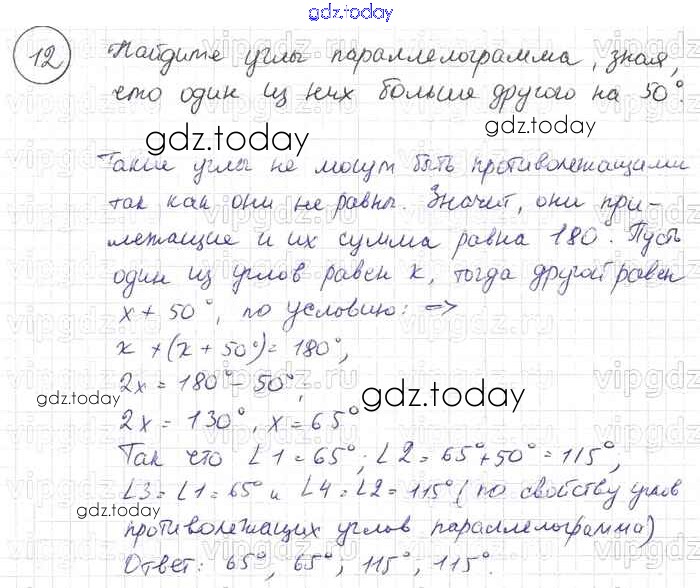 gdz.today
12 Найдите углы параллелограмма, зная,
что один из них больше другого на 50°.
gdz.today
gdz.today
Такие углы не могут быть противолежащими
так как они не равны. Значит, они при-
лежащие и их сумма равна 180°. Пусть
один из углов равен x, тогда другой равен
x + 50°, по условию: ⇒
x + (x + 50°) = 180°,
2x = 180° - 50°;
gdz.today
gdz.today
2x = 130°, x = 65°
Так что ∠1 = 65°; ∠2 = 65° + 50° = 115°,
∠3 = ∠1 = 65° и ∠4 = ∠2 = 115° (по свойству углов
gdz.today
gdz.today
противолежащих углов параллелограмма)
Ответ: 65°, 65°, 115°, 115°.